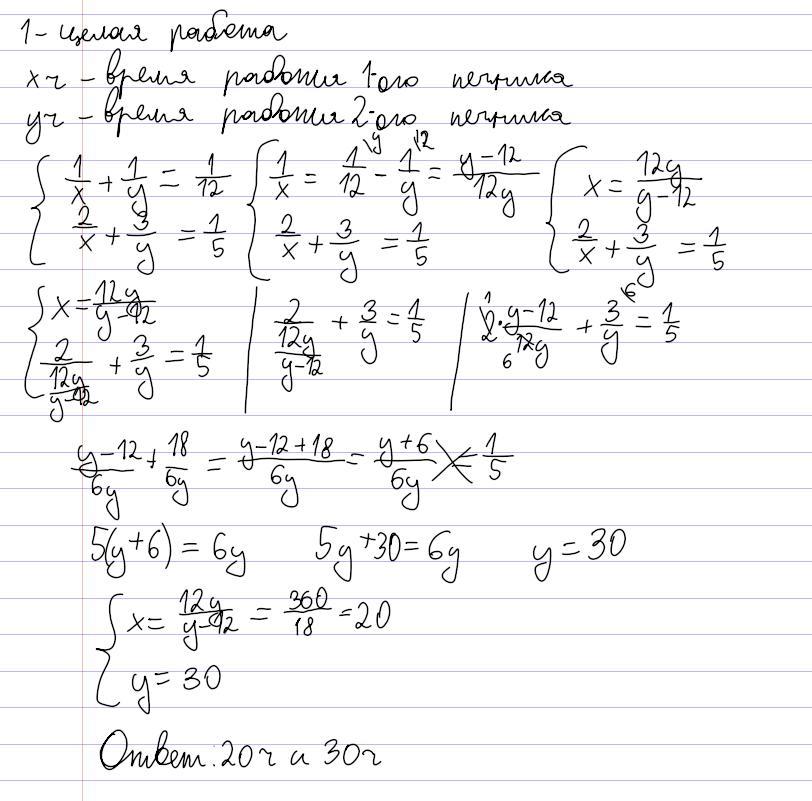 1 - целая работа
x ч - время работы 1-ого печника
y ч - время работы 2-ого печника
{ 1/x + 1/y = 1/12 { 1/x = 1/12 \y - 1/y \12 = (y-12)/12y { x = 12y/(y-12)
2/x + 3/y = 1/5 2/x + 3/y = 1/5 2/x + 3/y = 1/5
{ x = 12y/(y-12) | 2/(12y/(y-12)) + 3/y = 1/5 | 2 1 · (y-12)/12y 6 + 3/y \6 = 1/5
2/(12y/(y-12)) + 3/y = 1/5
(y-12)/6y + 18/6y = (y-12+18)/6y = (y+6)/6y = 1/5
5(y+6) = 6y 5y+30 = 6y y = 30
{ x = 12y/(y-12) = 360/18 = 20
y = 30
Ответ: 20ч и 30ч